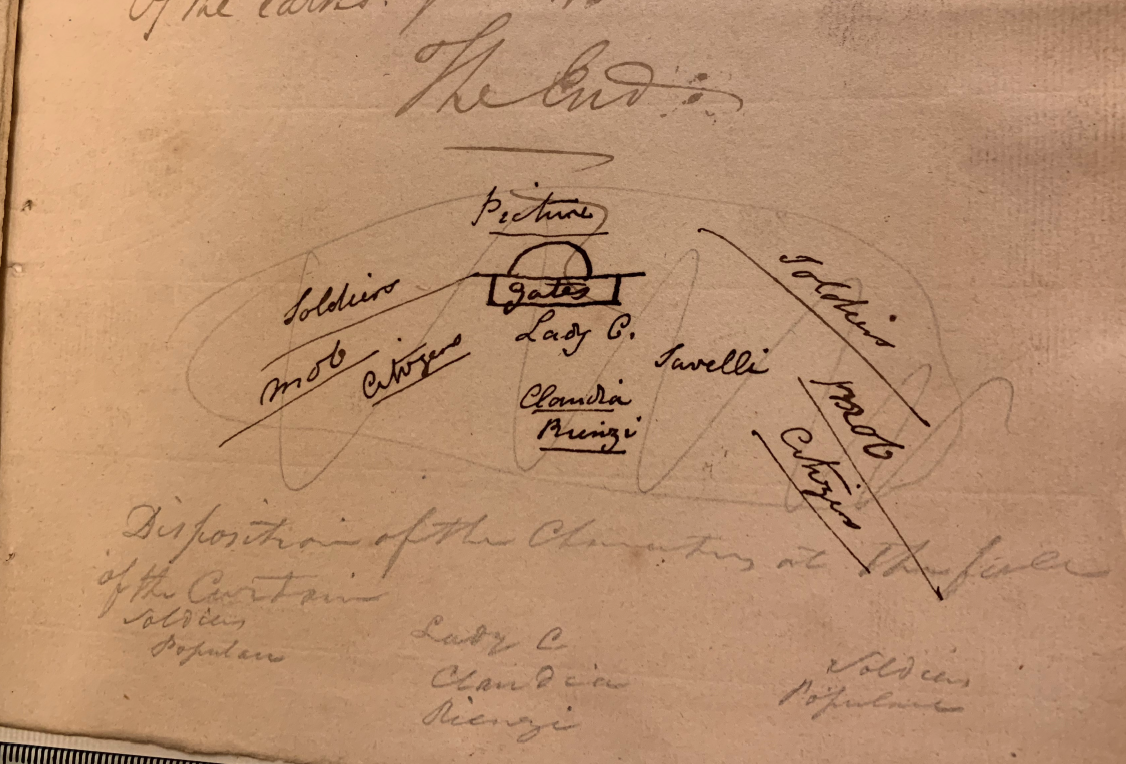 of the earth.
The End:
Picture
Soldiers
mob
Citizens
gates
Lady C.
Savelli
Claudia
Rienzi
Soldiers
Mob
Citizens
Disposition of the Characters at the fall
of the Curtain
Soldiers
Populace
Lady C
Claudia
Rienzi
Soldiers
Populace